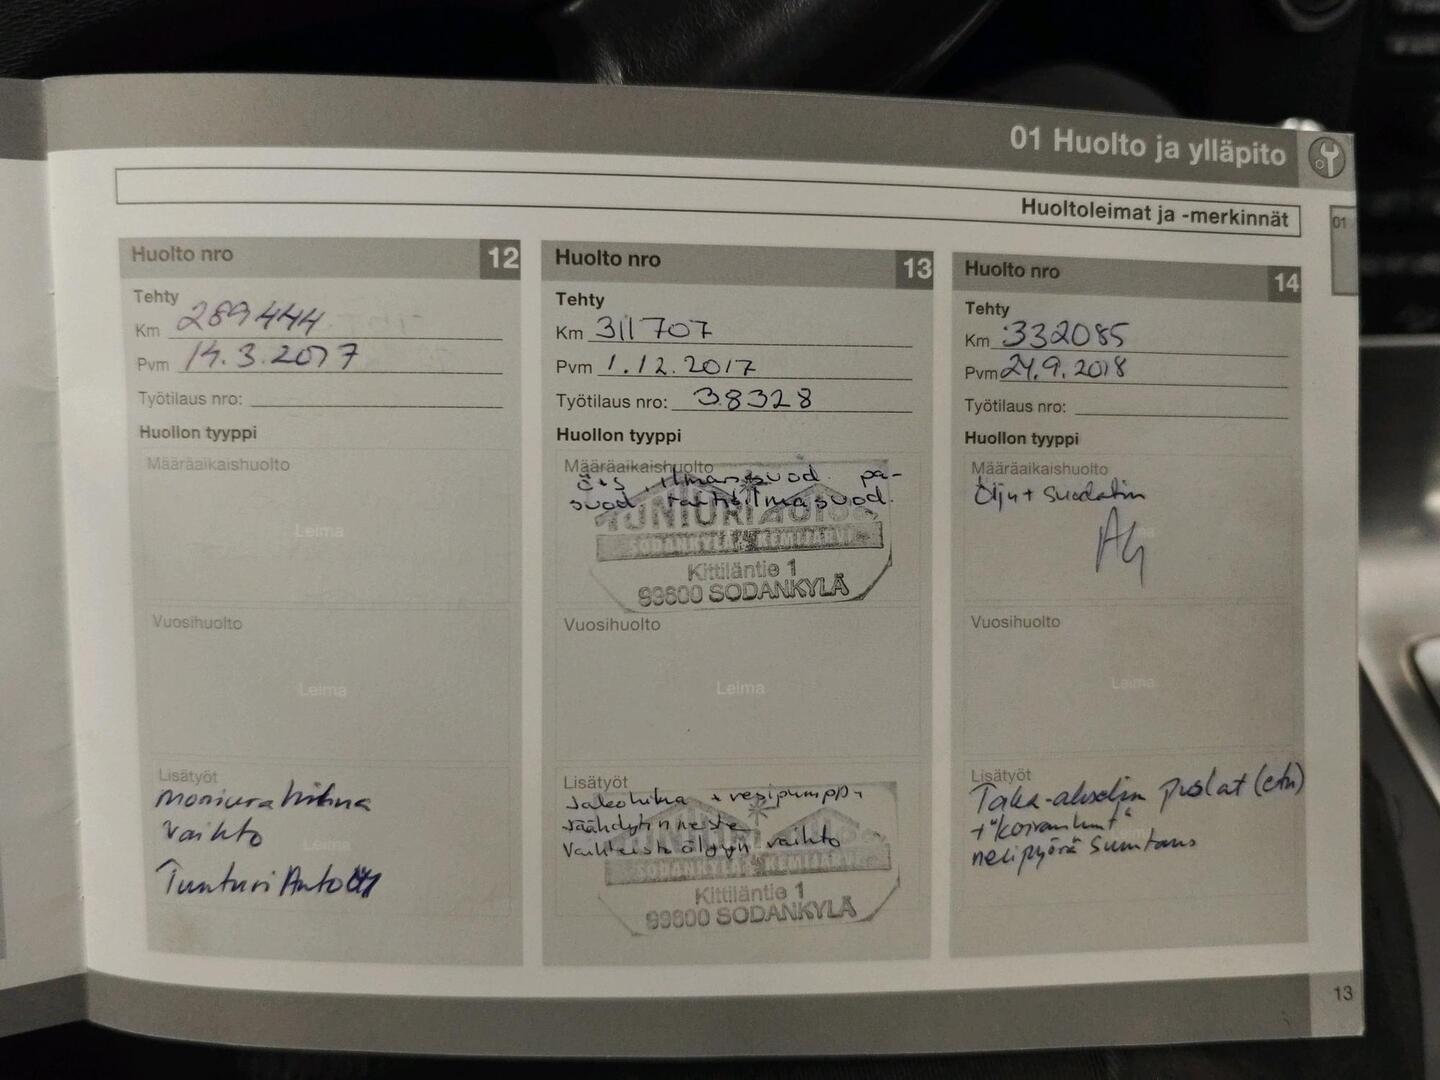 01 Huolto ja ylläpito
Huoltoleimat ja -merkinnät
01
Huolto nro 12
Tehty
Km 289444
Pvm 14.3.2017
Työtilaus nro:
Huollon tyyppi
Määräaikaishuolto
Leima
Vuosihuolto
Leima
Lisätyöt
moniurahihna
vaihto
Tunturi Auto
Huolto nro 13
Tehty
Km 311707
Pvm 1.12.2017
Työtilaus nro: 38328
Huollon tyyppi
Määräaikaishuolto
ö+s, ilmansuod. pa-
suod. raitisilmasuod.
SODANKYLÄ KEMIJÄRVI
Kittiläntie 1
99600 SODANKYLÄ
Vuosihuolto
Leima
Lisätyöt
Jakohihna + vesipumppu
Jäähdytinneste
Vaihteistoöljyn vaihto
SODANKYLÄ KEMIJÄRVI
Kittiläntie 1
99600 SODANKYLÄ
Huolto nro 14
Tehty
Km 332085
Pvm 24.9.2018
Työtilaus nro:
Huollon tyyppi
Määräaikaishuolto
Öljy + suodatin
Vuosihuolto
Leima
Lisätyöt
Taka-akselin puslat (etu)
+ "koiranluut"
nelipyörä suuntaus
13